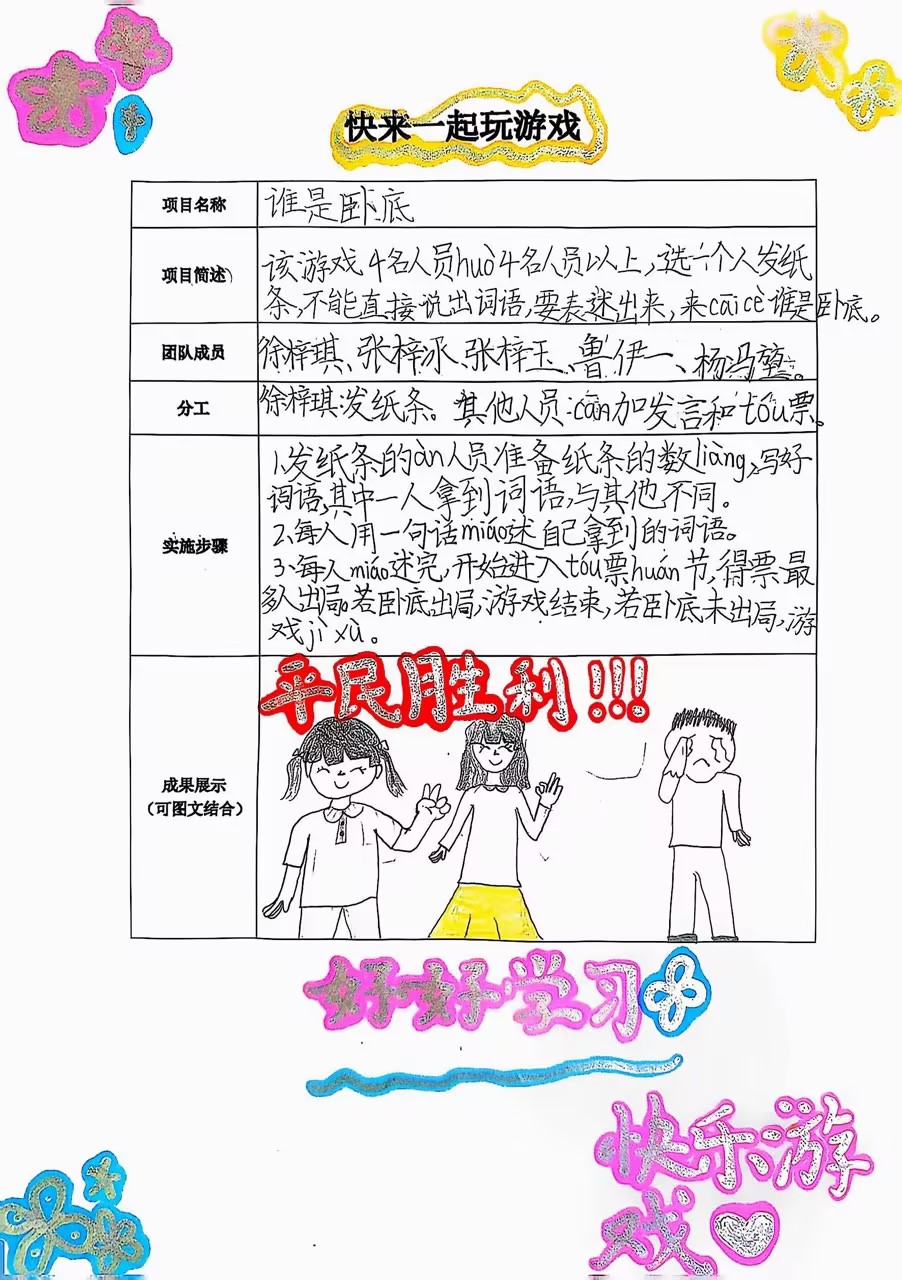 快来一起玩游戏
项目名称
谁是卧底
项目简述
该游戏4名人员huò4名人员以上,选一个人发纸
条,不能直接说出词语,要表述出来,来cāicè谁是卧底。
团队成员
徐梓琪、张梓冰、张梓玉、鲁伊一、杨冯堃。
分工
徐梓琪:发纸条。其他人员:cān加发言和tóu票。
实施步骤
1.发纸条的àn人员准备纸条的数liàng,写好
词语,其中一人拿到词语,与其他不同。
2.每人用一句话miáo述自己拿到的词语。
3.每人miáo述完,开始进入tóu票huán节,得票最
多人出局。若卧底出局,游戏结束,若卧底未出局,游
戏jì xù。
成果展示
(可图文结合)
平民胜利!!!
好好学习
快乐游
戏